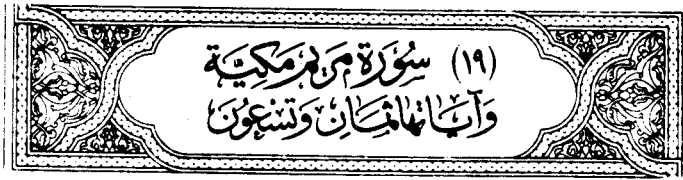 (١٩) سُورَة مَريَم مَكِيَّة
وَآيَاتهَا ثمَانِ وَتسْعُونَ